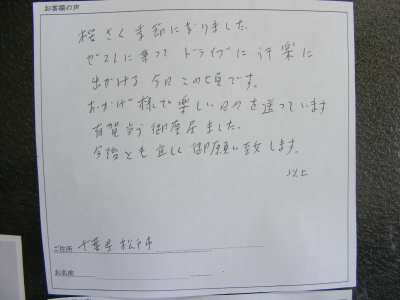 お客様の声
桜さく季節になりました。
ゼストに乗って ドライブに行楽に
出かける今日この頃です。
おかげ様で楽しい日々を送っています
有賀当う御座居ました。
今後とも宜しく御願い致します。
以上
ご住所 千葉県松戸市
お名前